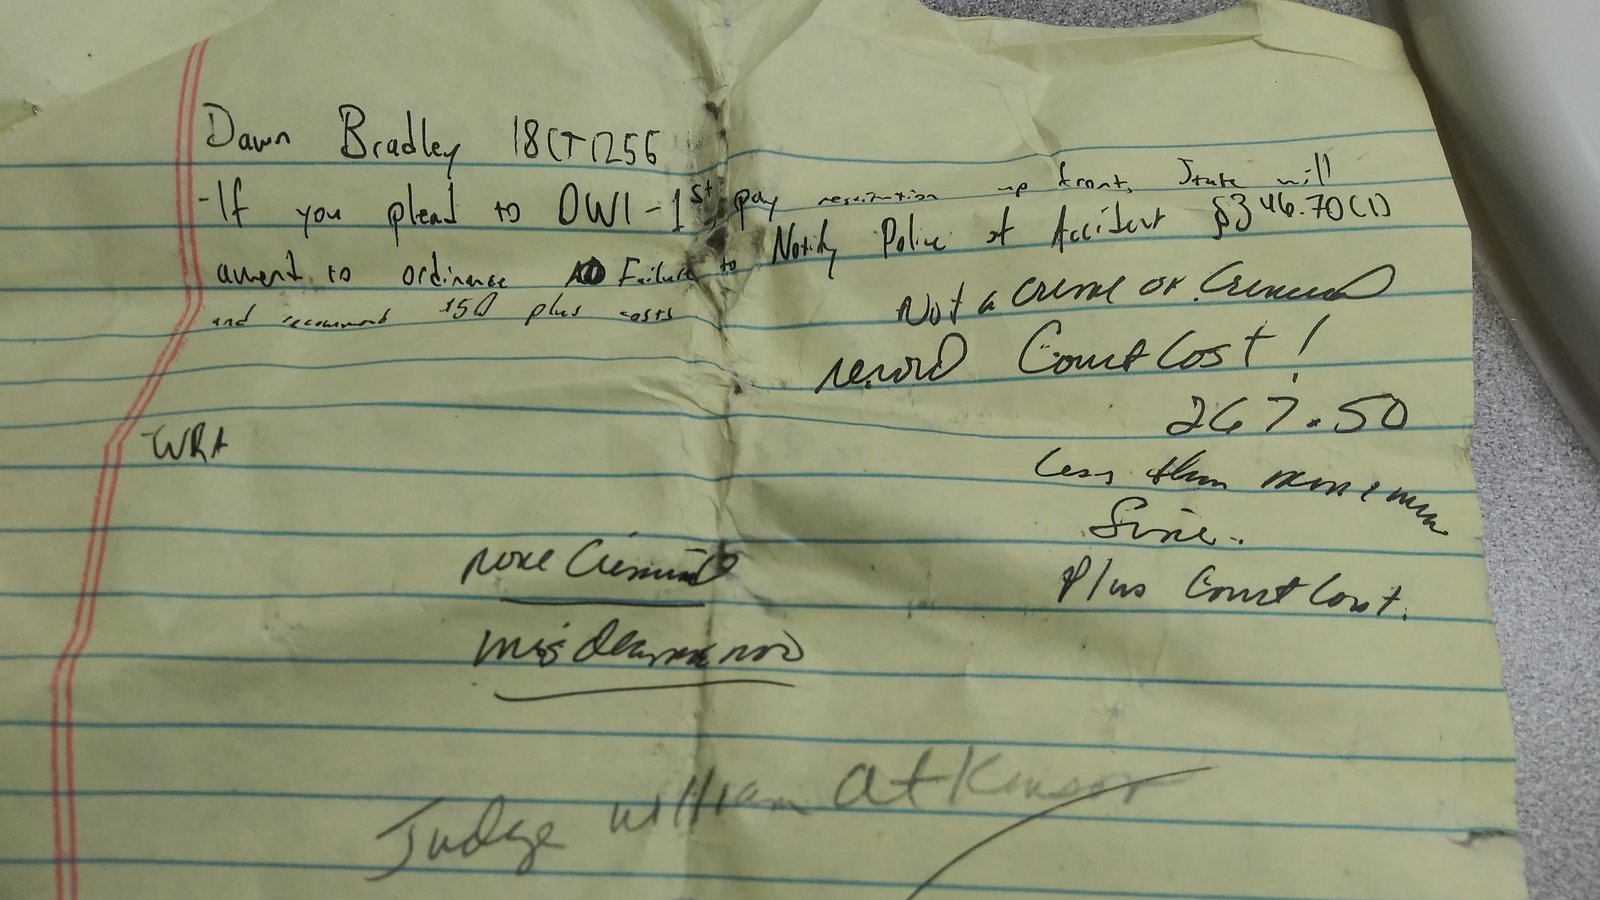 Dawn Bradley 18CT1256
-If you plead to OWI-1st, pay restitution up front, State will
ament to ordinance Failure to Notify Police of Accident §346.70(1)
and recommend $50 plus costs
Not a crime or Criminal
record Court Cost!
267.50
-WRA
Less than
fine.
none Criminal
Plus Court Cost.
misdemeanor
Judge William Atkinson